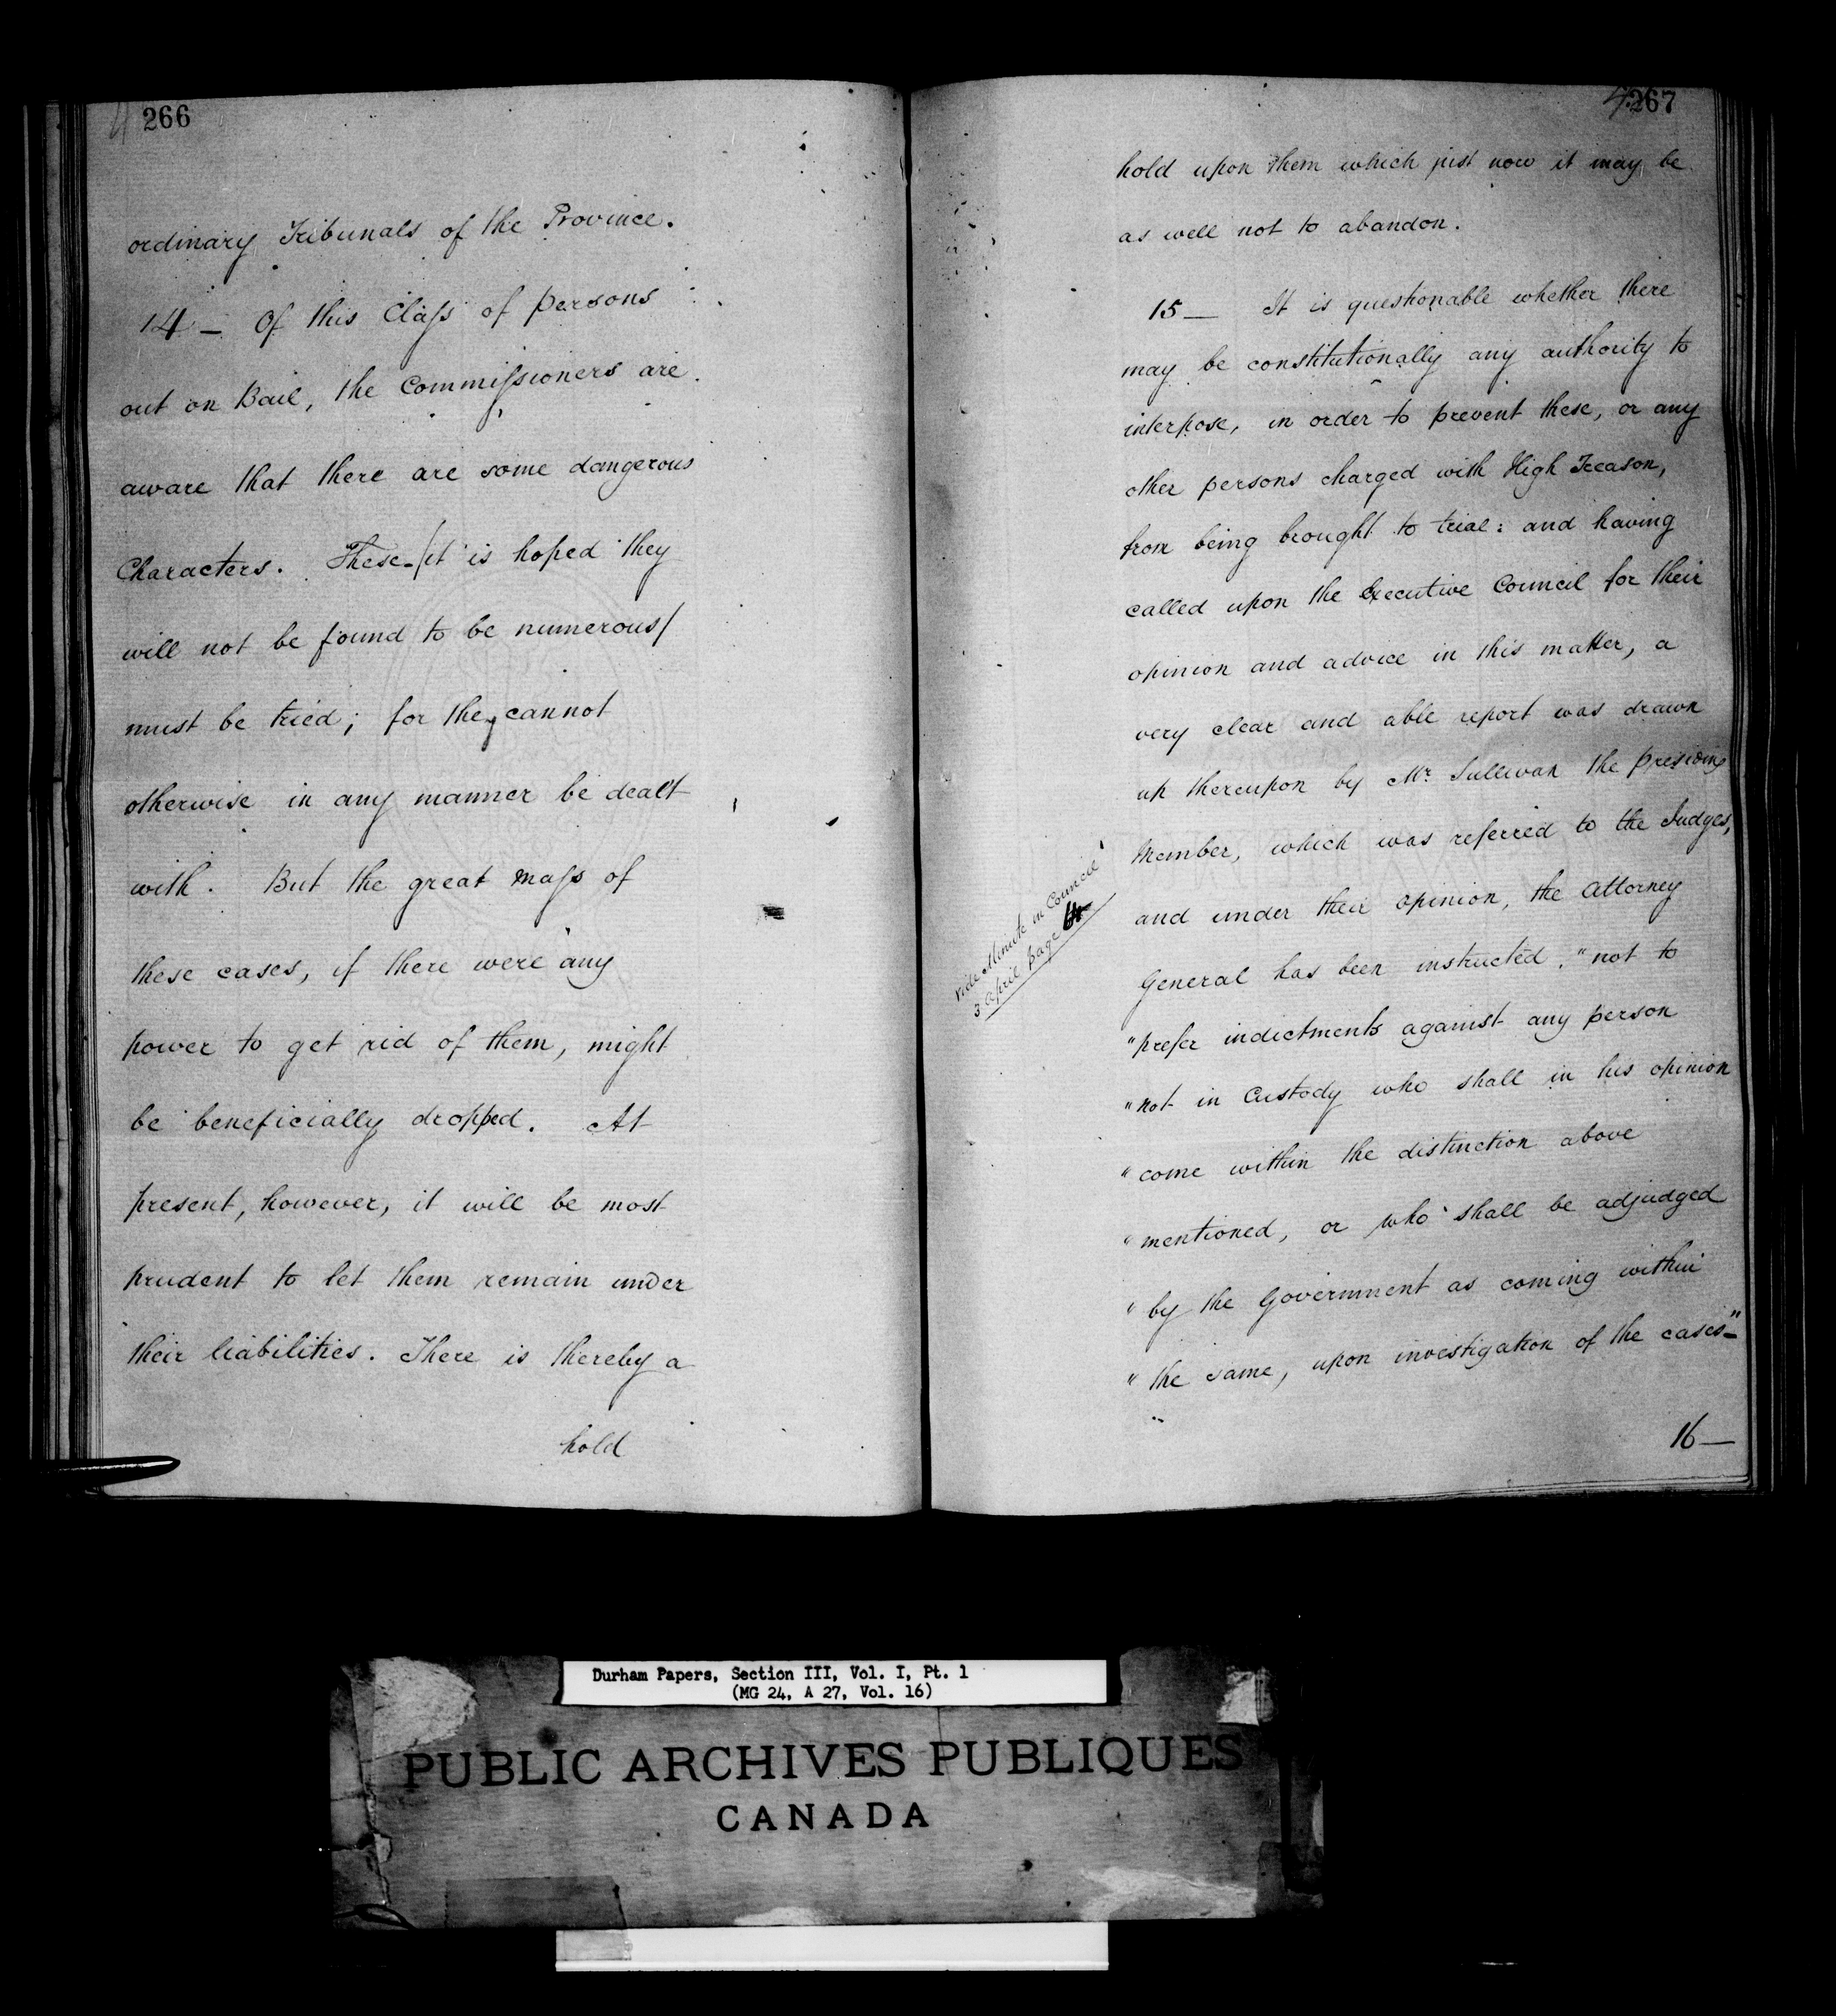 266
ordinary Tribunals of the Province.
14 — Of this Claſs of persons
out on Bail, the Commiſsioners are
aware that there are some dangerous
Characters. These - /it is hoped they
will not be found to be numerous/
must be tried; for they cannot
otherwise in any manner be dealt
with. But the great maſs of
these cases, if there were any
power to get rid of them, might
be beneficially dropped. At
present, however, it will be most
prudent to let them remain under
their liabilities. There is thereby a
hold
267
hold upon them which just now it may be
as well not to abandon.
15 — It is questionable whether there
may be constitutionally any authority to
interpose, in order to prevent these, or any
other persons charged with High Treason,
from being brought to trial: and having
called upon the Executive Council for their
opinion and advice in this matter, a
very clear and able report was drawn
up thereupon by Mr. Sullivan the presiding
Member, which was referred to the Judges,
vide Minute in Council
3 April page
and under their opinion, the Attorney
General has been instructed. "not to
"prefer indictments against any person
"not in Custody who shall in his opinion
"come within the distinction above
"mentioned, or who shall be adjudged
"by the Government as coming within
"the same, upon investigation of the cases"—
16 —
Durham Papers, Section III, Vol. I, Pt. 1
(MG 24, A 27, Vol. 16)
PUBLIC ARCHIVES PUBLIQUES
CANADA